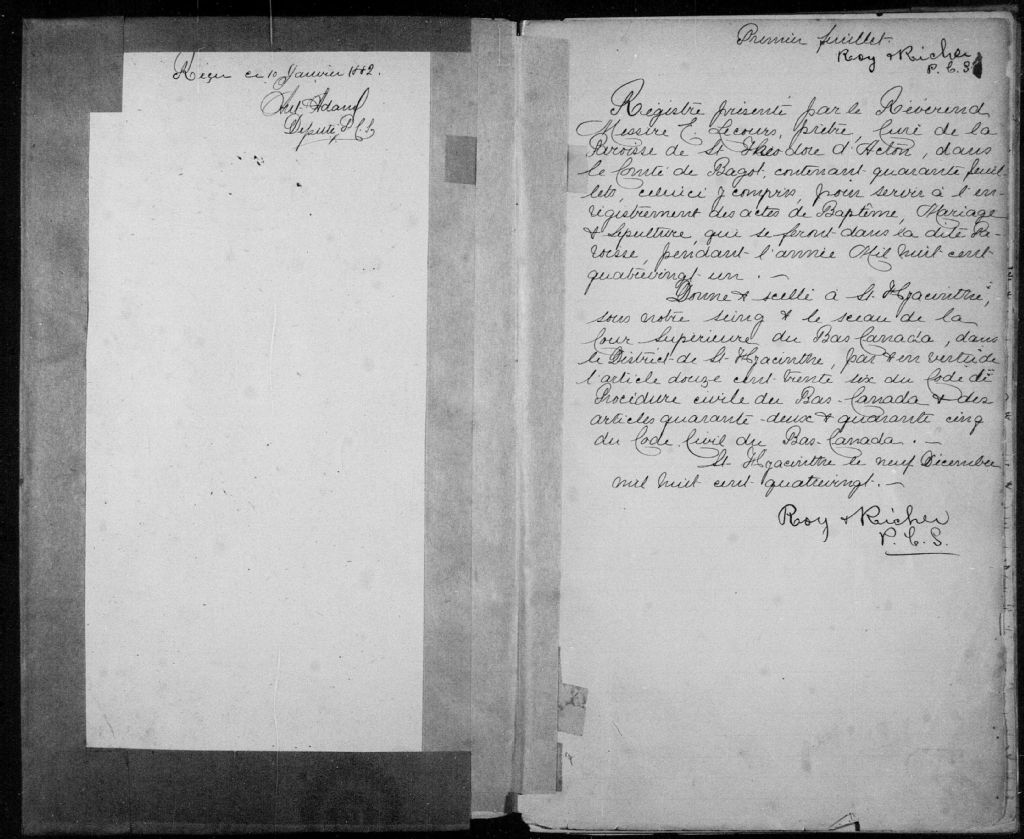 Reçu ce 10 Janvier 1882.
Député P. C. S.
Premier feuillet.
Roy & Richer
P. C. S.
Registre présenté par le Révérend
Messire E. Lecours, prêtre, Curé de la
Paroisse de St. Théodore d'Acton, dans
le Comté de Bagot, contenant quarante feuil
lets, celuici y compris, pour servir à l'en-
régistrement des actes de Baptême, Mariage
& Sépulture, qui se feront dans la dite Pa-
roisse, pendant l'année Mil huit cent
quatrevingt un. —
Donné & scellé à St. Hyacinthe,
sous notre seing & le sceau de la
Cour Supérieure du Bas Canada, dans
le District de St. Hyacinthe, par & en vertu de
l'article douze cent trente six du Code de
Procédure civile du Bas-Canada & des
articles quarante-deux & quarante cinq
du Code Civil du Bas-Canada. —
St. Hyacinthe le neuf Décembre
mil huit cent quatrevingt. —
Roy & Richer
P. C. S.